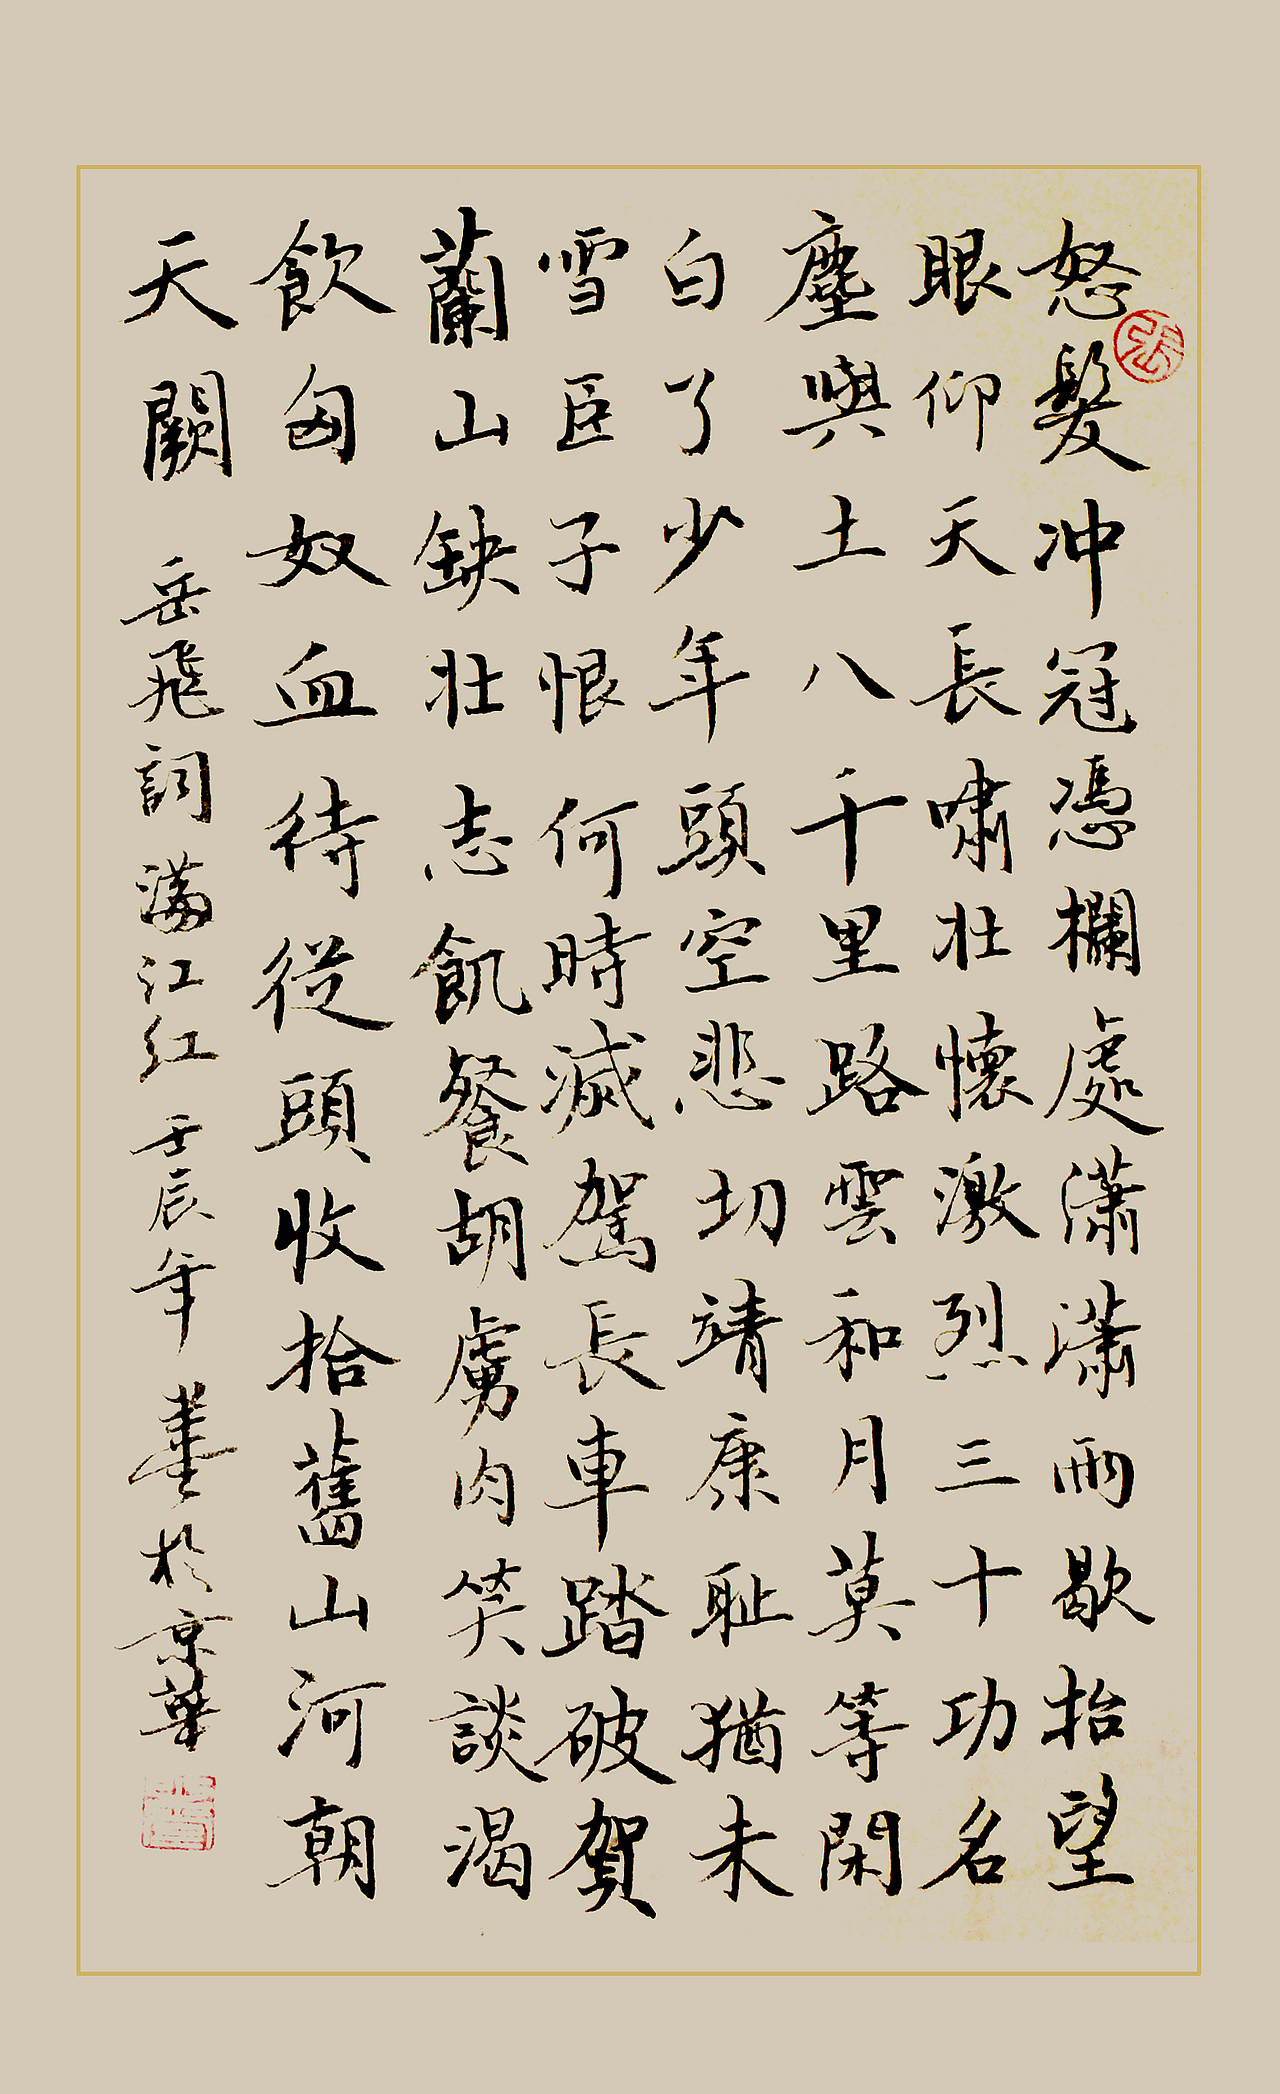 怒髮冲冠憑欄處瀟瀟雨歇抬望
眼仰天長嘯壯懷激烈三十功名
塵與土八千里路雲和月莫等閑
白了少年頭空悲切靖康耻猶未
雪臣子恨何時滅駕長車踏破賀
蘭山缺壯志飢餐胡虜肉笑談渴
飲匈奴血待從頭收拾舊山河朝
天闕 岳飛詞 滿江红 壬辰年 於京華